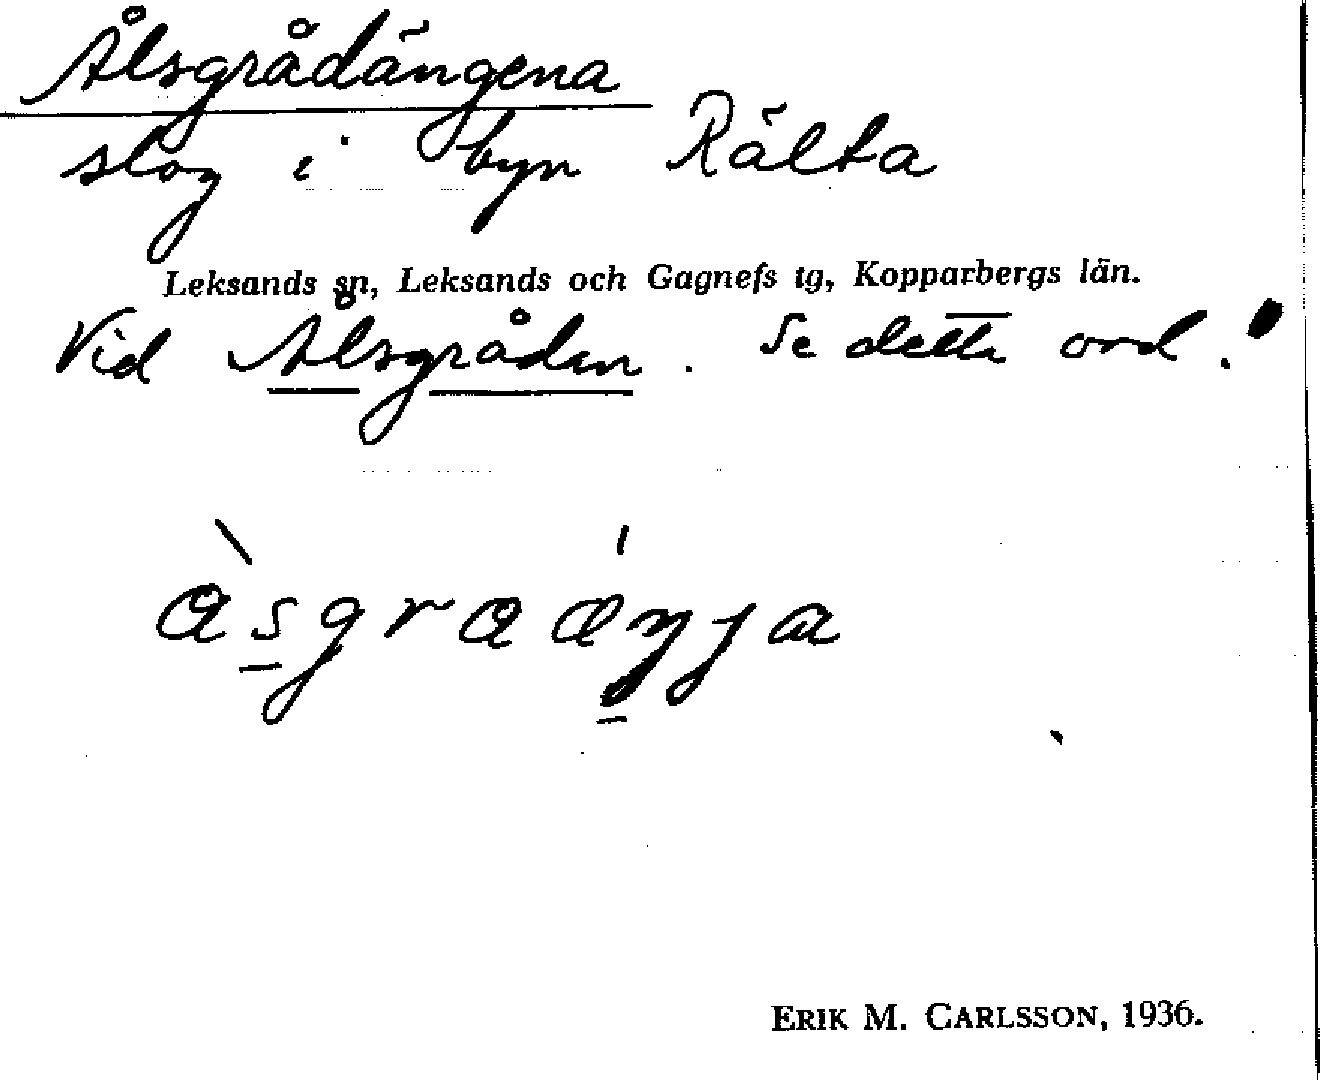 Ålsgrådängena
slog i byn Rälta
Leksands sn, Leksands och Gagnefs tg, Kopparbergs län.
Vid Ålsgråden. Se detta ord!
ERIK M. CARLSSON, 1936.